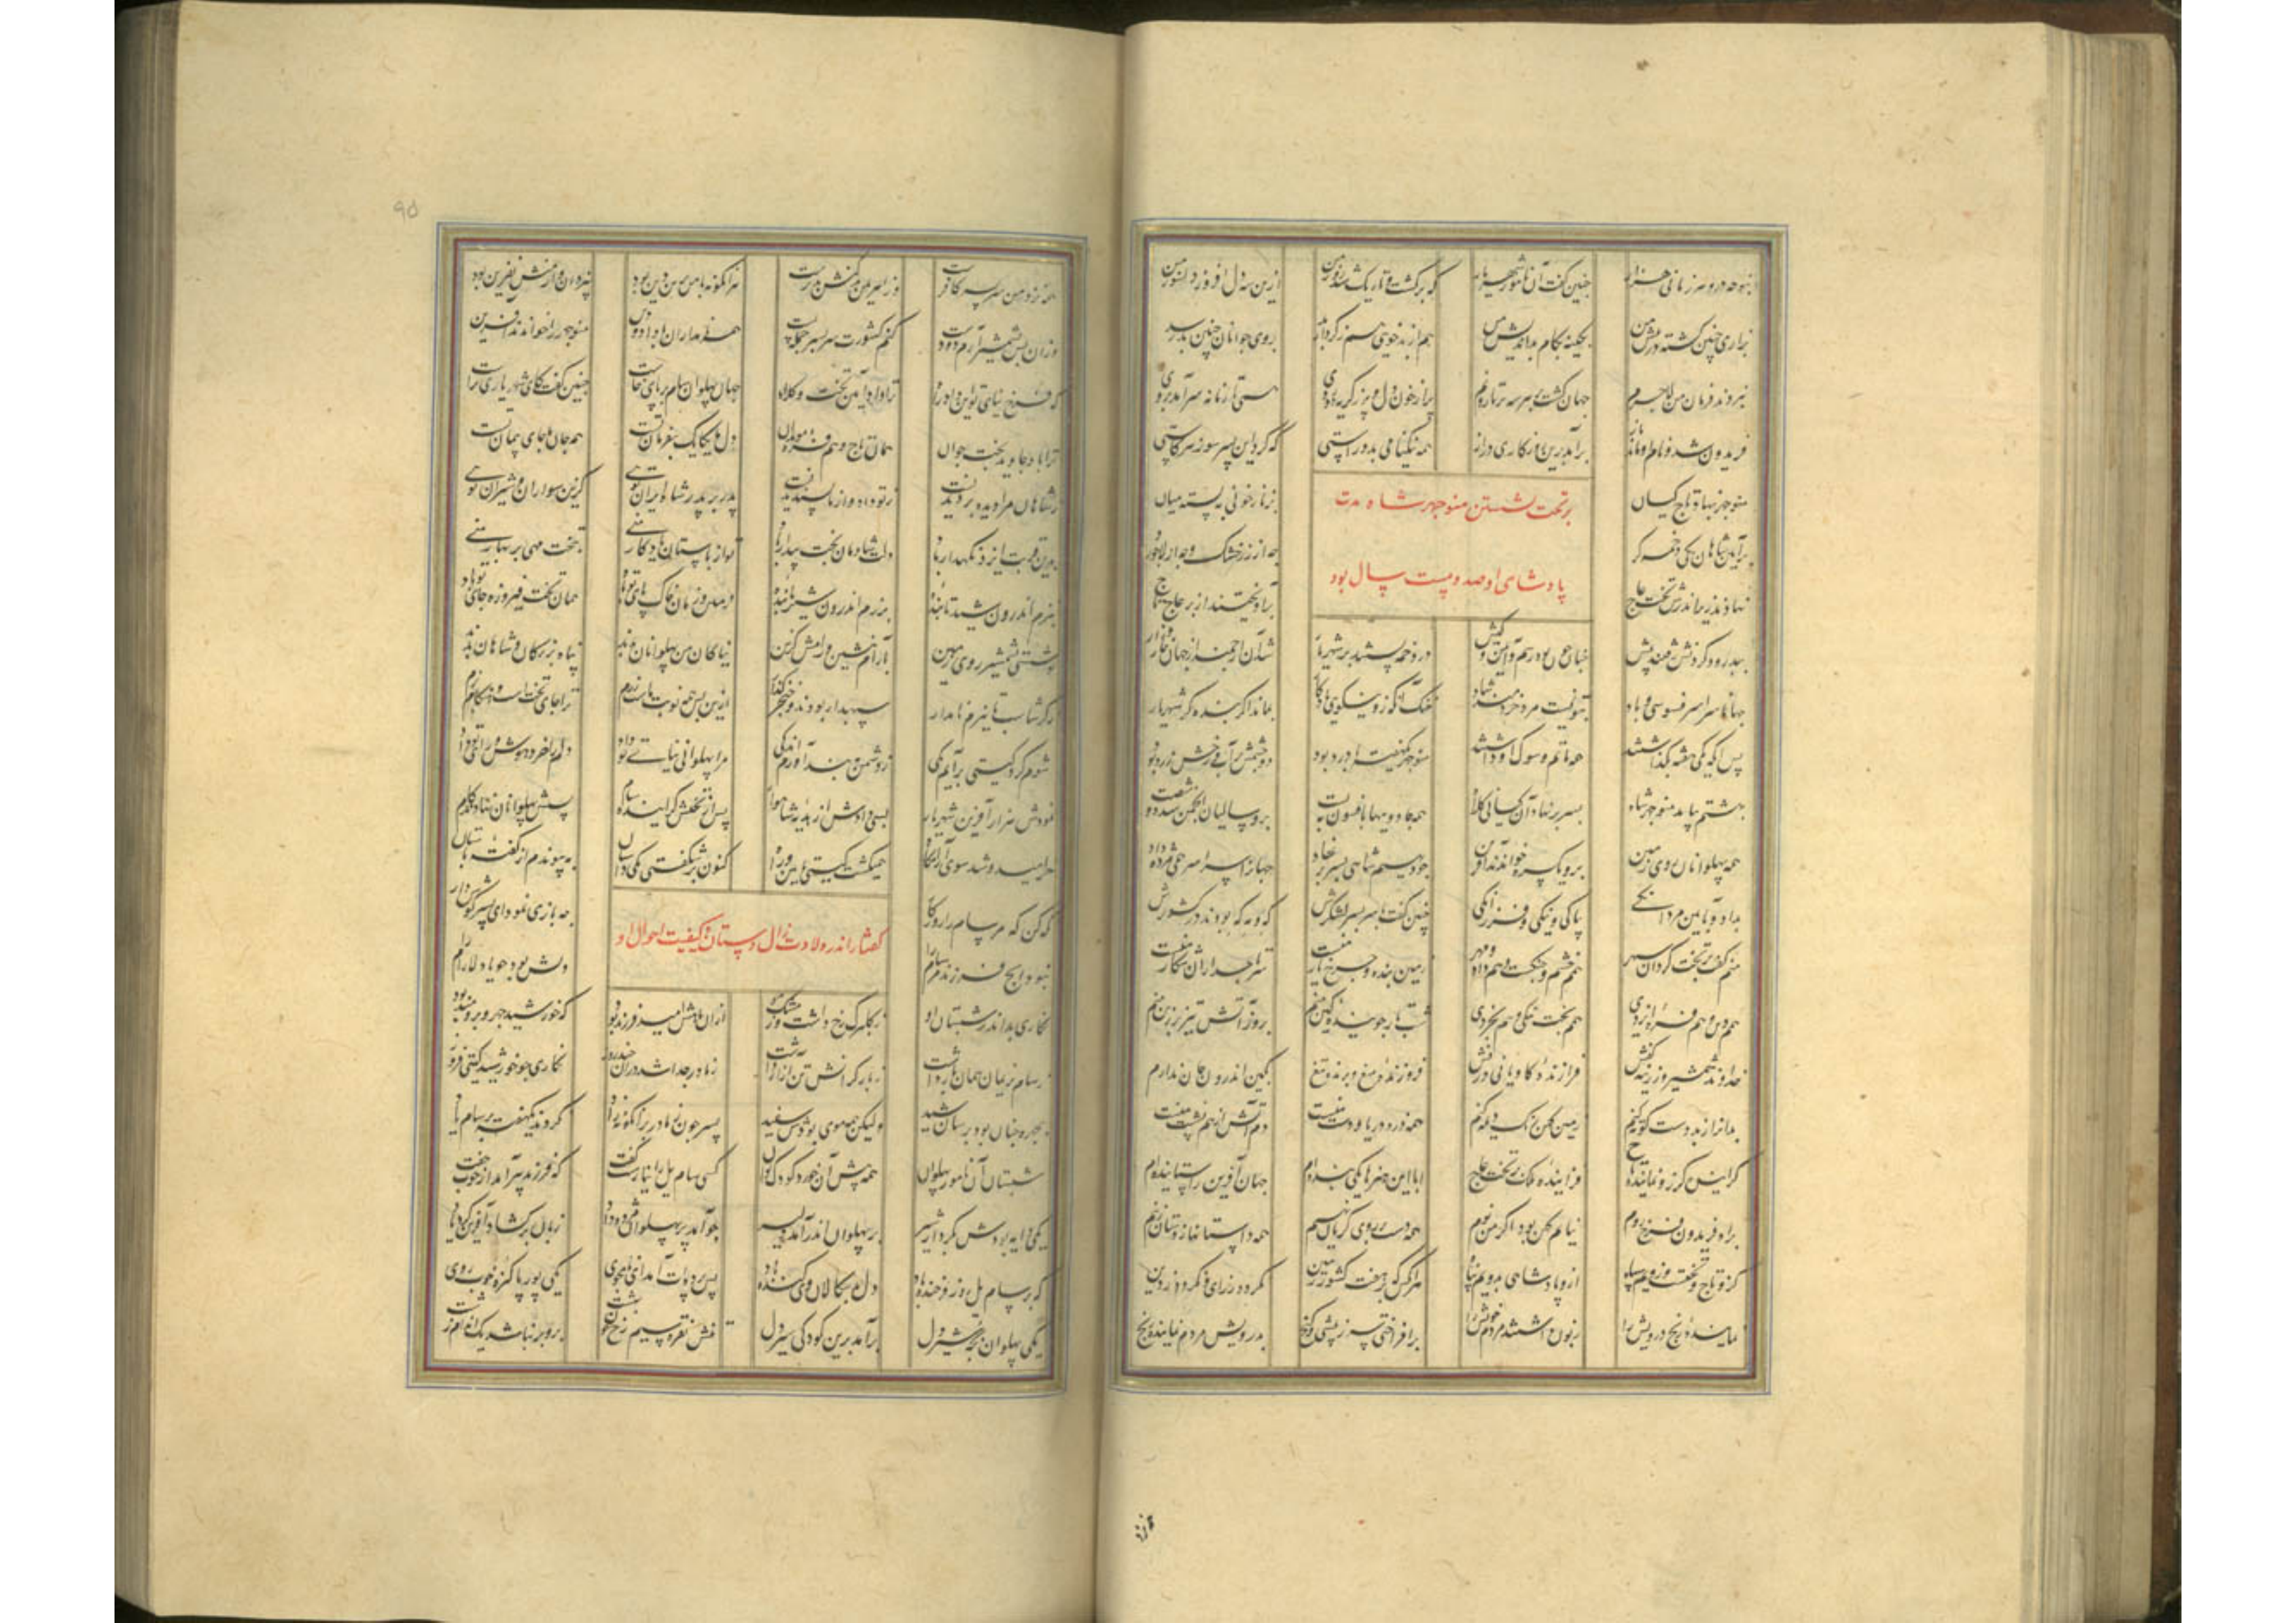 بنوحه درون هر زمانی بزار چنین گفت آن نامور شهریار که برگشت و تاریک شد روز من ازین سه دل افروز دلسوز من
بزاری چنین کشته در پیش من بکینه بکام بداندیش من هم از بدخویی هم ز کردار بد بروی جوانان چنین بد رسد
نبردند فرمان من لاجرم جهان گشت بر هر سه برنا دژم پر از خون دل و پر ز گریه دو روی همی تا زمانه سرآمد بروی
فریدون شد و نام او ماند باز برآمد برین روزگاری دراز همه نیکنامی بد و راستی که کرد ای پسر سود بر کاستی
بر تخت نشستن منوچهر شاه مدت
پادشاهی او صد و بیست سال بود
منوچهر بنهاد تاج کیان بزنار خونی ببسته میان
برآیین شاهان یکی دخمه کرد چه از زر خشک و چه از لاجورد
نهادند زیر اندرش تخت عاج بیاویختند از بر عاج تاج
ببدرود کردنش رفتند پیش چنان چون بود رسم و آیین و کیش در دخمه بستند بر شهریار شد آن ارجمند از جهان خوار و زار
جهانا سراسر فسوسی و باد بتو نیست مرد خردمند شاد خنک آنکه زو نیکویی یادگار بماند اگر بنده گر شهریار
پس آنگه یکی هفته بگذاشتند همه ماتم و سوک او داشتند منوچهر یکهفته با درد بود دو چشمش پر آب و رخش زرد بود
بهشتم بیامد منوچهر شاه بسر بر نهاد آن کیانی کلاه همه جادویها بافسون ببست برو سالیان انجمن شد دو شصت
همه پهلوانان روی زمین برو یکسره خواندند آفرین چو دیهیم شاهی بسر بر نهاد جهانرا سراسر همی مژده داد
بداد و بآیین و مردانگی بپاکی و نیکی و فرزانگی چنین گفت با سربسر لشکرش که و مه که بودند در کشورش
منم گفت بر تخت گردان سپهر همم خشم و جنگست و هم داد و مهر زمین بنده و چرخ یار منست سر تاجداران شکار منست
همم دین و هم فره ایزدی همم بخت نیکی و هم بخردی شب تار جوینده کین منم بروز آتش تیز برزین منم
خداوند شمشیر و زرینه کفش فرازنده کاویانی درفش فروزنده میغ و برنده تیغ بکین اندرون جان ندارم دریغ
بدانرا ز بد دست کوته کنم زمین را بکین رنگ دیبه کنم دم آتش از
گراینده گرز و نماینده تاج فزاینده ملک بر تخت عاج ابا این هنرها یکی بنده ام جهان آفرین را ستاینده ام
براه فریدون فرخ رویم نیام کهن بود اگر من نوم همه دست بر روی گریان زنیم همه داستانها ز یزدان زنیم
کزو تاج و تختست وزویم سپاه ازو پادشاهی بدویم پناه هر آنکس که در هفت کشور زمین بگردد ز رای و بگردد ز دین
نماینده رنج درویش را زبون داشتن مردم خویش را برافراختن سر ز بیشی و گنج بدرویش مردم نماینده رنج
همه نزد من سربسر کافرست وز اهریمن بدکنش بدترست هرانکو نه با من برین دین بود ز یزدان و از منش نفرین بود
وزان پس بشمشیر آریم دست کنم کشورت سربسر جمله پست همه منوچهر را خواندند آفرین
که فرخ نیای تو این داد راه ترا داد آیین تخت و کلاه جهان پهلوان سام بر پای خاست چنین گفت کای
ترا باد جاوید بخت جوان همان تاج و هم فره موبدان دل ما یکایک بفرمان تست همه جان ما جای پیمان تست
ز شاهان مرا دیده بر دیدنست ز تو داد و از ما پسندیدنست پدر بر پدر شاه ایران توی گزین سواران و شیران توی
ایزد نگهدار باد دلت شادمان بخت بیدار باد تو از باستان یادگار منی بتخت مهی بر بهار منی
ببزم اندرون شید تابنده برزم اندرون شیر پاینده زمین و زمان خاک پای تو باد همان تخت فیروزه جای تو باد
بشستی بشمشیر روی زمین بآرام بنشین و رامش گزین نیاکان من پهلوانان بدند پناه بزرگان و شاهان بدند
ز گرشاسب تا نیرم نامدار سپهدار بودند و خنجر گذار ازین پس همه نوبت ماست رزم ترا جای تخت است و بزم
شوم گرد گیتی برآیم یکی ز دشمن ببند آورم اندکی مرا پهلوانی نیای تو داد دلم را خرد هوش و رای تو داد
فزودش هزار آفرین شهریار بسی دادش از هدیه شاهوار پس از تختش گراینده سام پسش پهلوانان نهادند گام
خرامید و شد سوی آرامگاه همیگشت گیتی بآیین و راه کنون بر شگفتی یکی داستان بپیوندم از گفته باستان
گفتار اندر ولادت زال دستان و کیفیت احوال او
نگه کن که مر سام را روزگار چه بازی نمود ای پسر گوش دار
نبود ایچ فرزند مر سام را دلش بود جویا دلارام را
نگاری بد اندر شبستان او ز گلبرگ رخ داشت وز مشک مو از آن ماهش امید فرزند بود که خورشید چهر و برومند بود
ز سام نریمان همان بار داشت ز بار گرانش تن آزار داشت ز مادر جدا شد در آن چند روز نگاری چو خورشید گیتی فروز
بچهره چنان بود بر سان شید ولیکن همه موی بودش سفید پسر چون ز مادر بر آنگونه زاد نکردند یکهفته بر سام یاد
شبستان آن نامور پهلوان همه پیش آن خرد کودک نوان کسی سام یل را نیارست گفت که فرزند پیر آمد از خوب جفت
یکی دایه بودش بکردار شیر بر پهلوان اندر آمد دلیر چو آمد بر پهلوان مژده داد زبان برگشاد آفرین کرد یاد
که بر سام یل روز فرخنده باد دل بدسگالان وی کنده باد پس پرده ات آمد ای نامجوی یکی پور پاکیزه خوب روی
یکی پهلوان بچه شیر دل برآمد برین کودکی شیر دل تنش نقره و سیم رخ چون بهشت برو بر نباشد یک اندام زشت